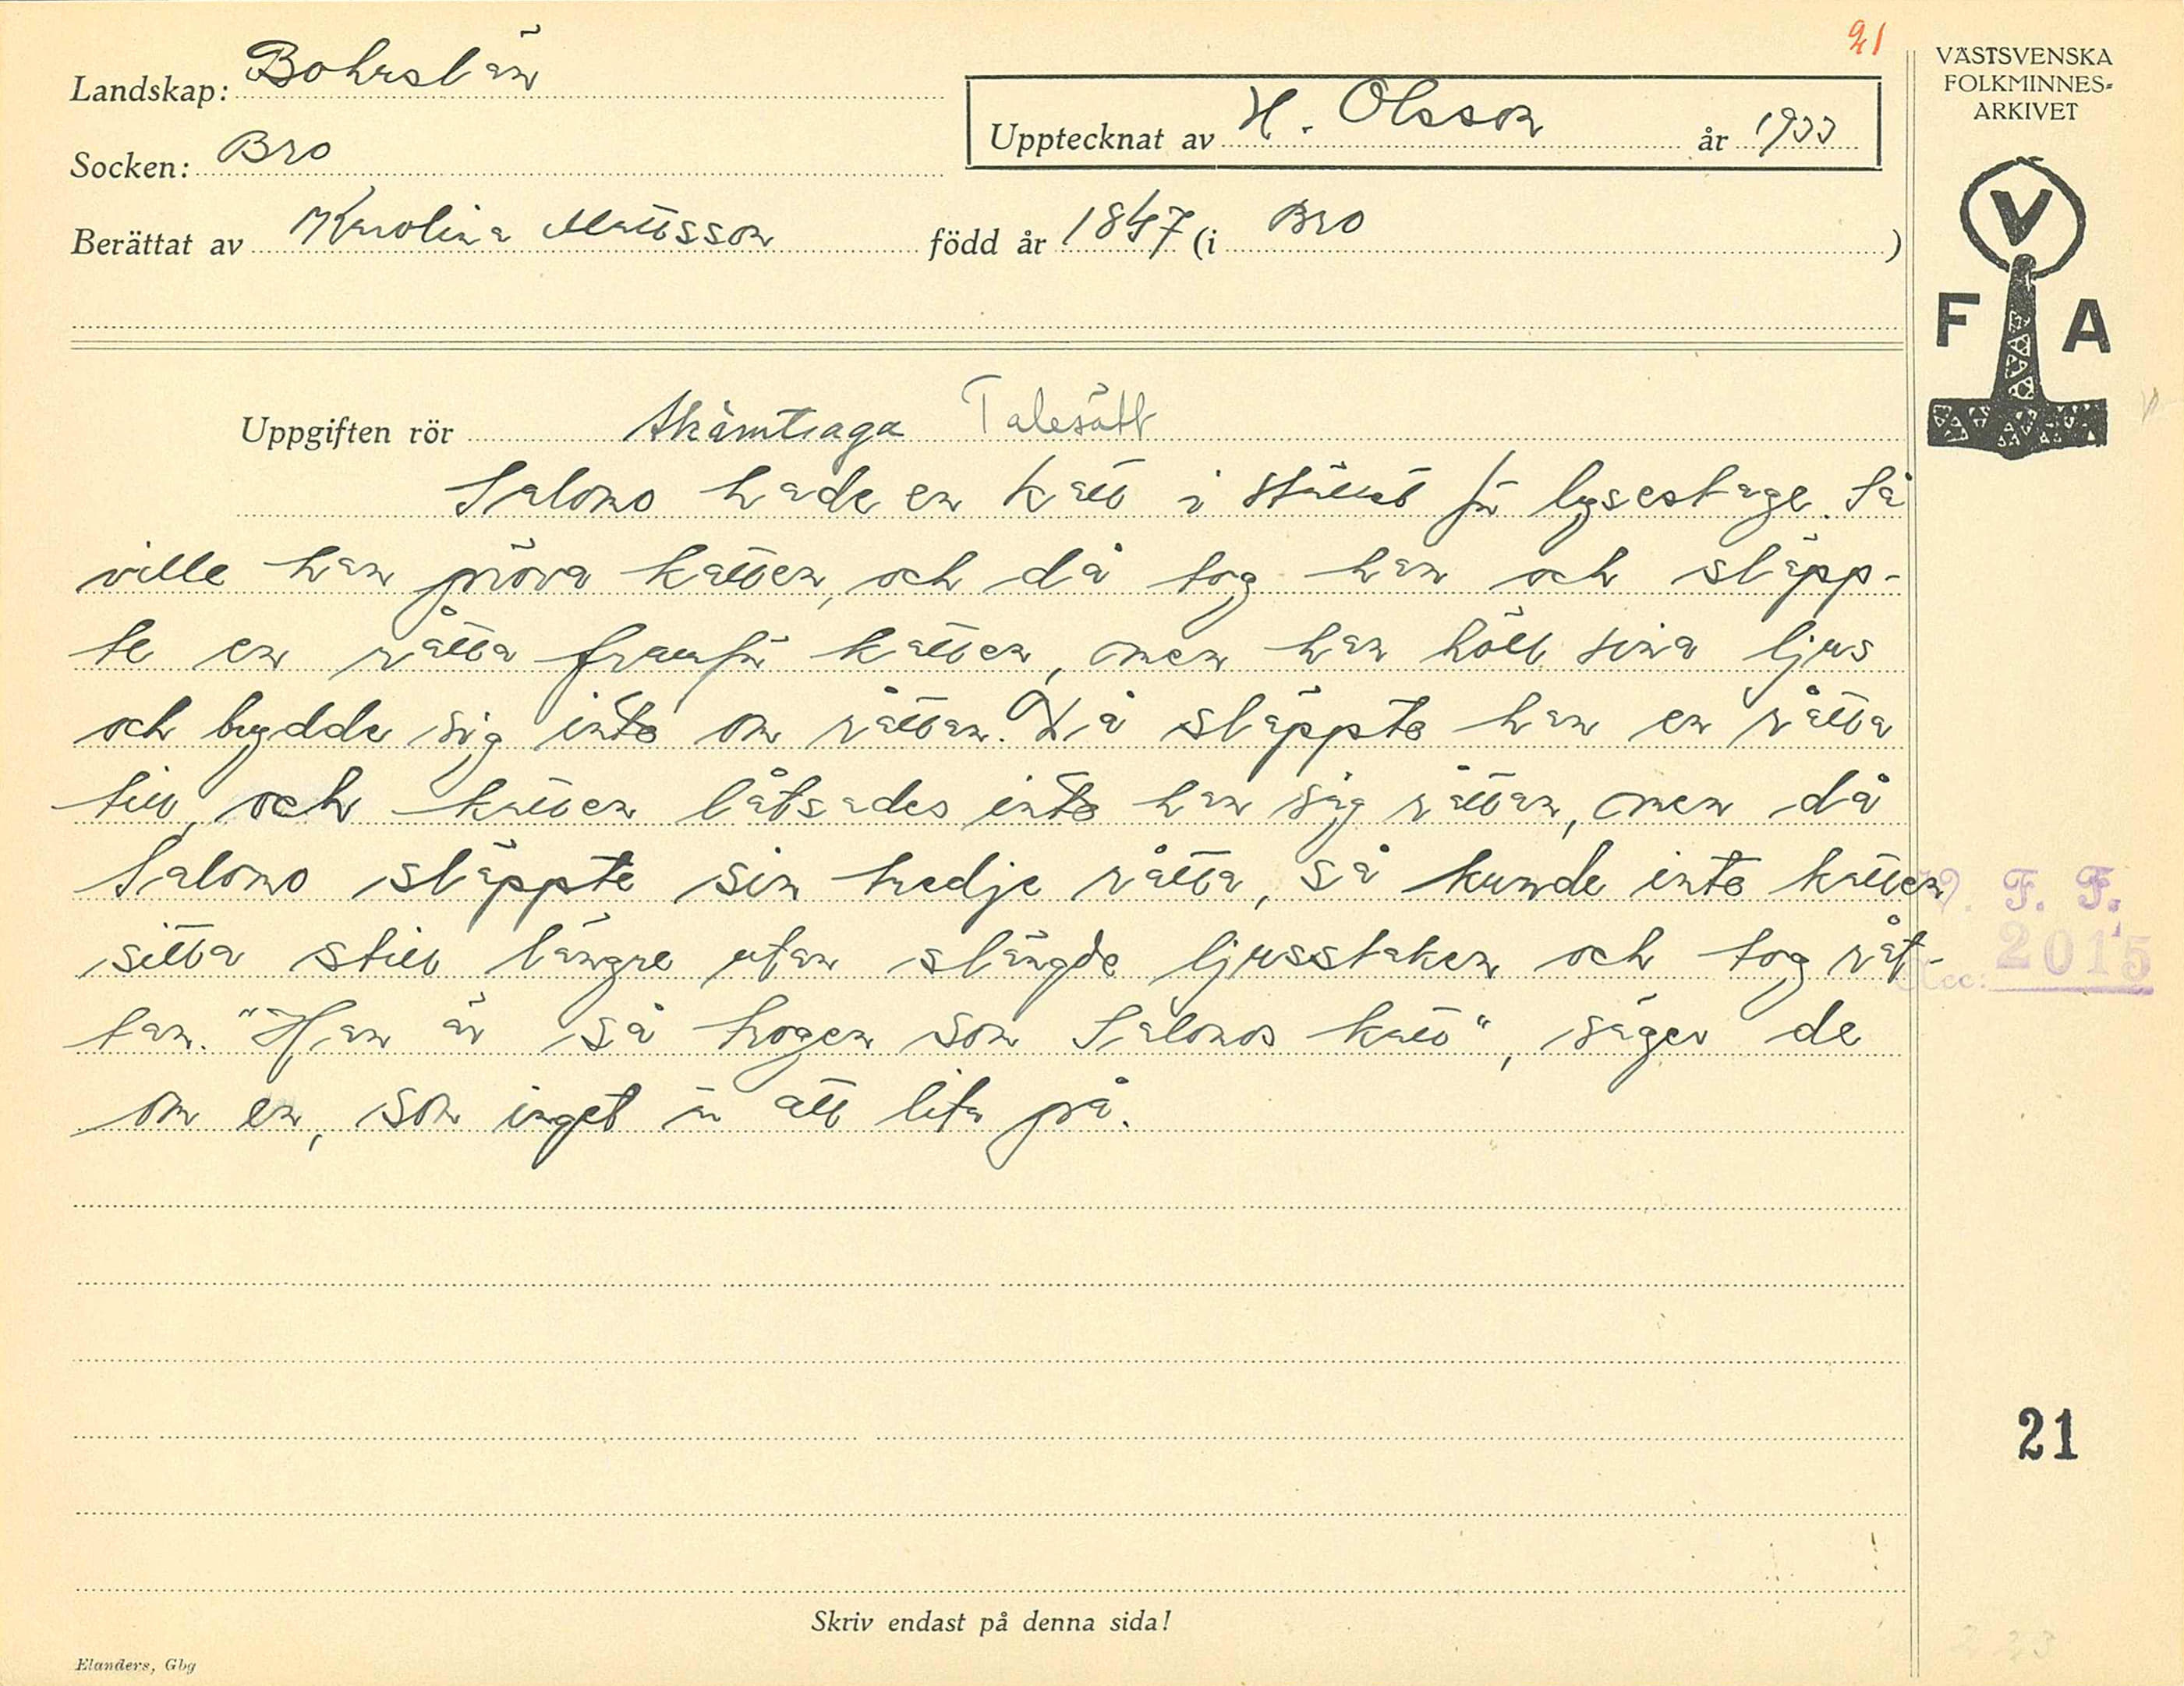 21
Landskap: Bohuslän
VÄSTSVENSKA
FOLKMINNES-
ARKIVET
Upptecknat av H. Olsson år 1933
Socken: Bro
Berättat av Karolina Mattsson född år 1847 (i Bro )
V
F A
Uppgiften rör Skämtsaga Talesätt
Salomo hade en katt i stället för lysestage. Så
ville han pröva katten, och då tog han och släpp-
te en råtta framför katten, men han höll sina ljus
och brydde sig inte om råttan. Då släppte han en råtta
till, och katten låtsades inte han såg råttan, men då
Salomo släppte sin tredje råtta, så kunde inte katten
sitta still längre utan slängde ljusstaken och tog råt-
tan. "Han är så trogen som Salomos katt", säger de
om en, som inget är att lita på.
V. F. F.
Acc: 2015
21
Skriv endast på denna sida!
Elanders, Gbg